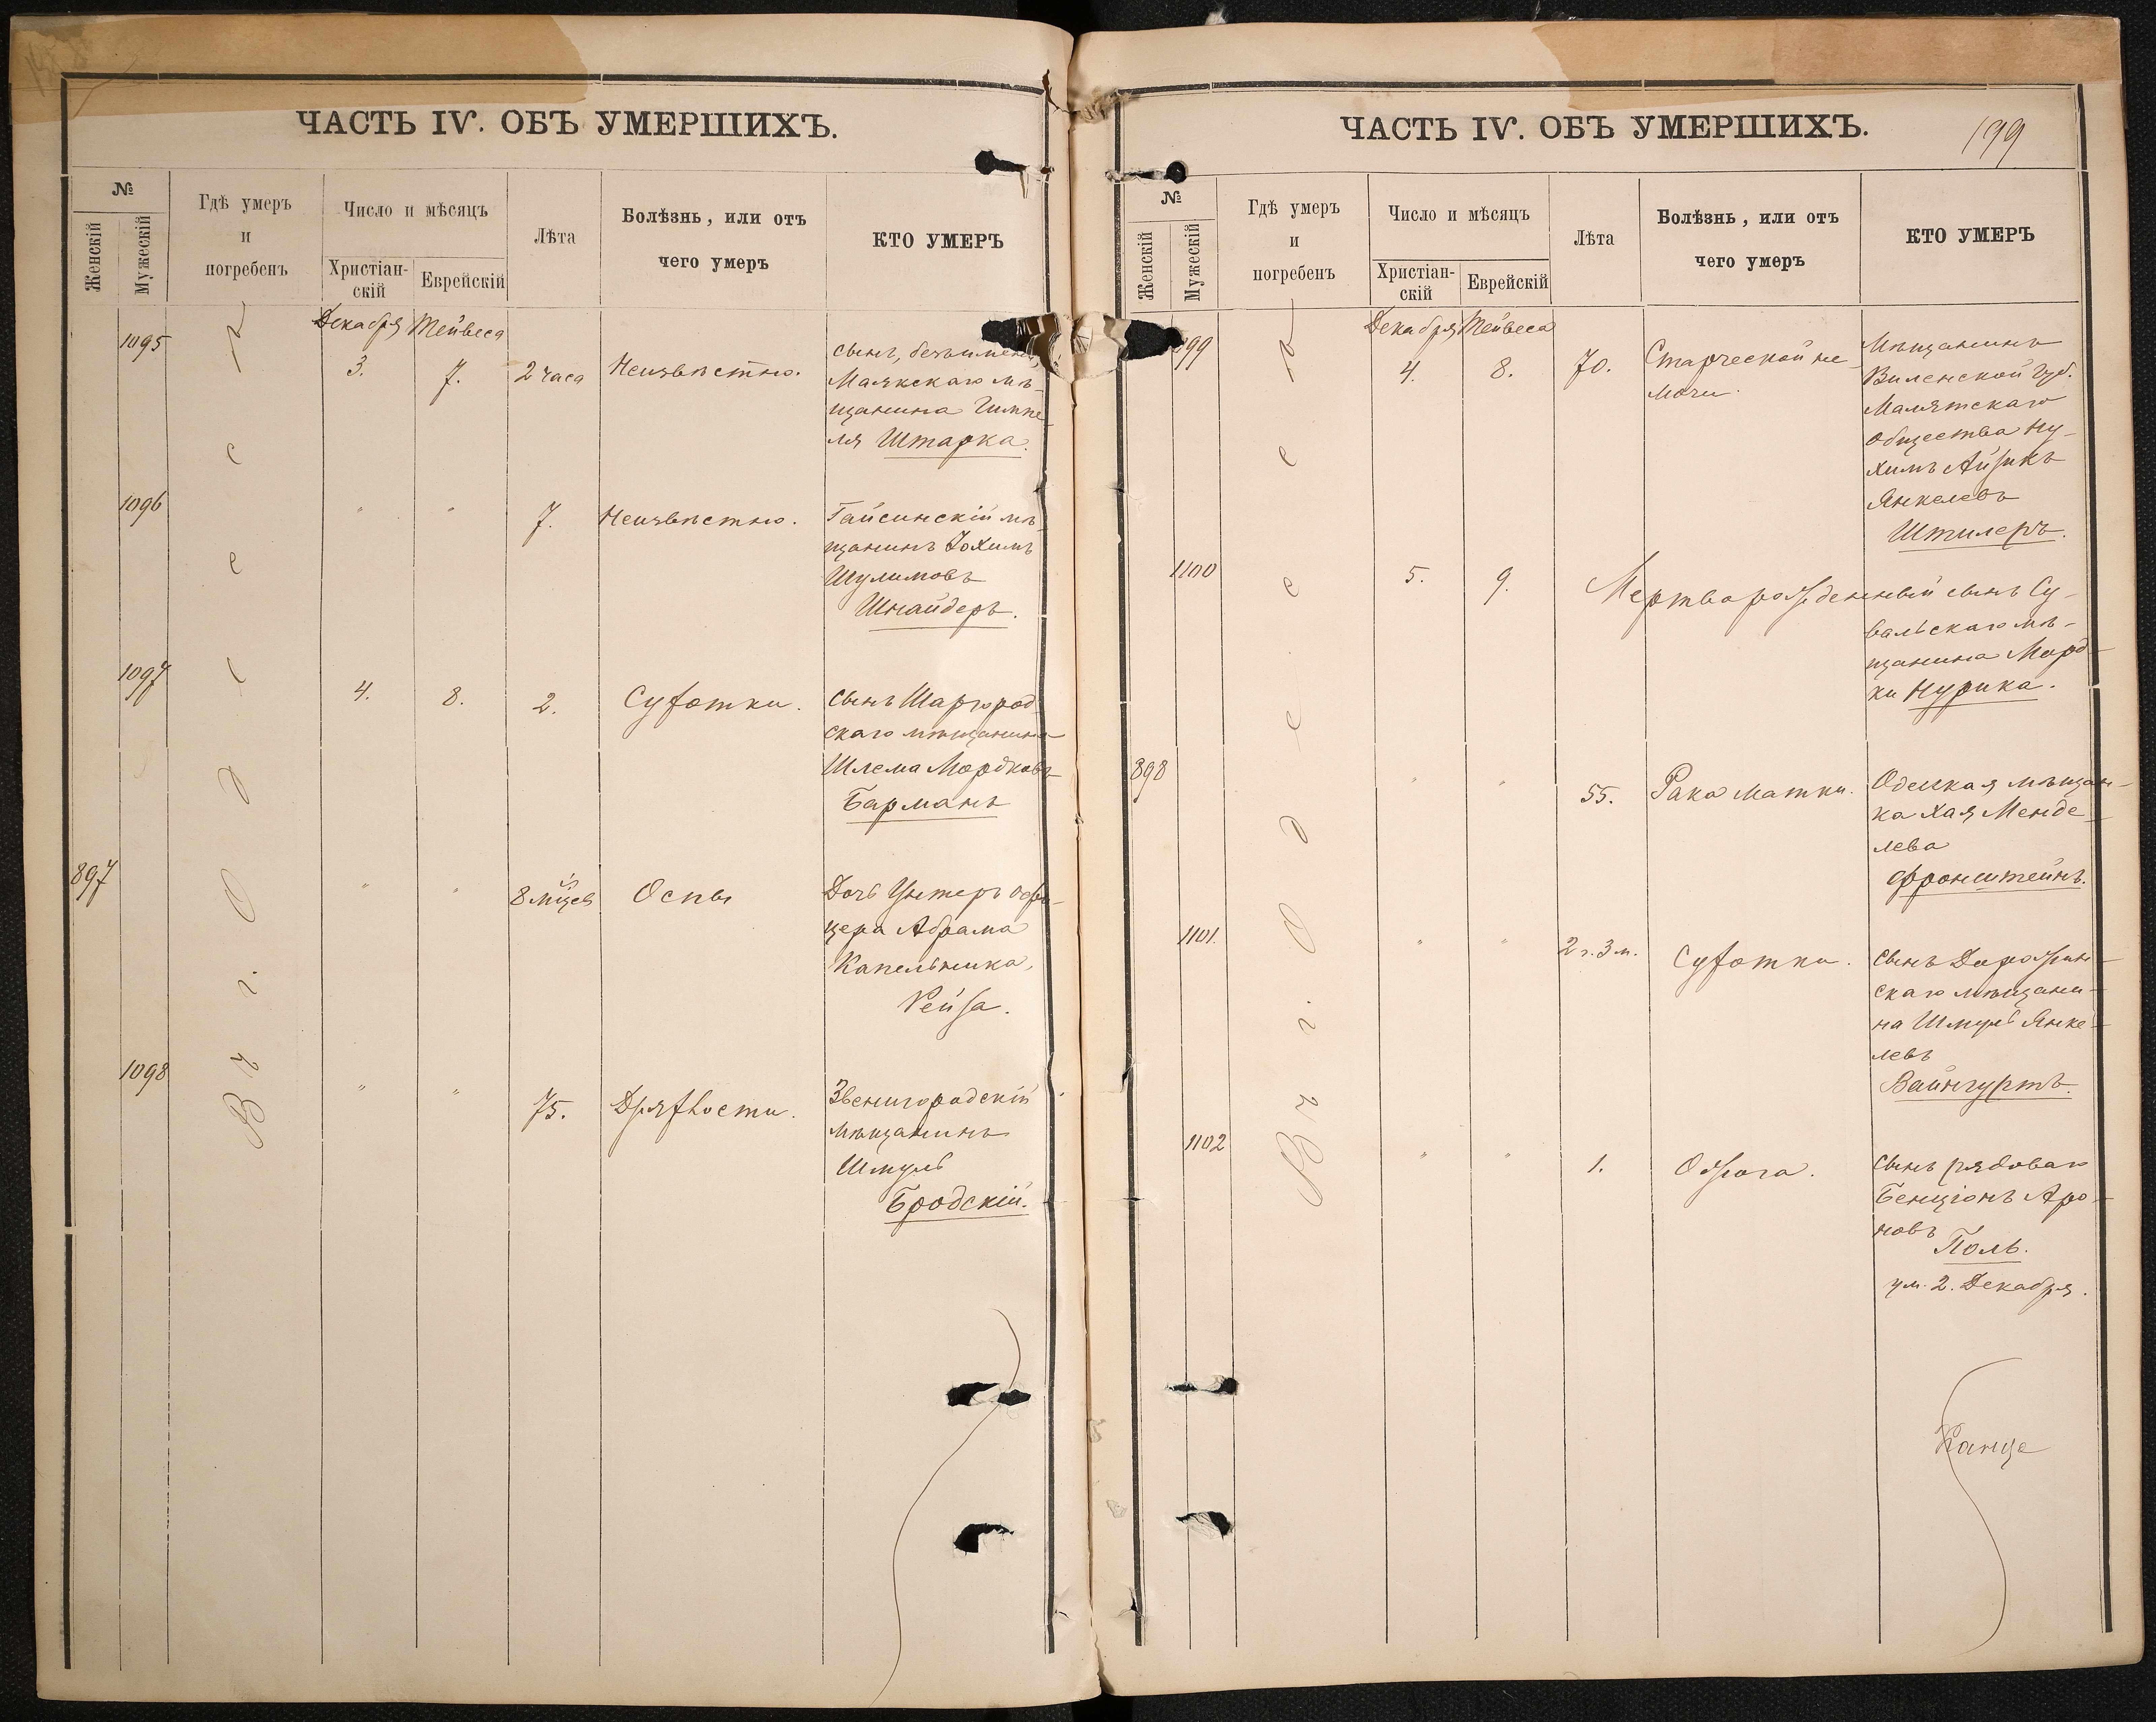 ЧАСТЬ IV. ОБЪ УМЕРШИХЪ.
№
Женскій
Мужескій
Гдѣ умеръ
и
погребенъ
Число и мѣсяцъ
Христіан-
скій
Еврейскій
Лѣта
Болѣзнь, или отъ
чего умеръ
КТО УМЕРЪ
Въ г. Одессѣ
Декабря Тейвеса
1095
3. 7. 2 часа Неизвѣстно.
сынъ, безъимен.
Маякскаго мѣ-
щанина Гимпе-
ля Штарка.
1096
" " 7. Неизвѣстно.
Гайсинскій мѣ-
щанинъ Іохимъ
Шулимовъ
Шнайдеръ.
1097
4. 8. 2. Сухотки.
сынъ Шаргород-
скаго мѣщанина
Шлема Мордковъ
Барманъ
897
" " 8 мѣцевъ Оспы
Дочь Унтеръ офи-
цера Абрама
Капельника,
Рейза.
1098
" " 75. Дряхлости.
Звенигородскій
мѣщанинъ
Шмуль
Бродскій.
ЧАСТЬ IV. ОБЪ УМЕРШИХЪ.
199
№
Женскій
Мужескій
Гдѣ умеръ
и
погребенъ
Число и мѣсяцъ
Христіан-
скій
Еврейскій
Лѣта
Болѣзнь, или отъ
чего умеръ
КТО УМЕРЪ
Въ г. Одессѣ
Декабря Тейвеса
1099
4. 8. 70. Старческой не-
мочи.
Мѣщанинъ
Виленской губ.
Малятскаго
Общества Ну-
химъ Айзикъ
Янкелевъ
Штилеръ.
1100
5. 9. Мертворожденный сынъ Су-
вальскаго мѣ-
щанина Морд-
ки Нурика.
898
" " 55. Рака матки.
Одесская мѣщан-
ка Хая Менде-
лева
Фронштейнъ.
1101.
" " 2 г. 3 м. Сухотки.
сынъ Дорожин-
скаго мѣщани-
на Шмуль Янке-
левъ
Вайнгуртъ.
1102
" " 1. Ожога.
сынъ рядоваго
Бенціонъ Аро-
новъ
Поль.
ум. 2. Декабря.